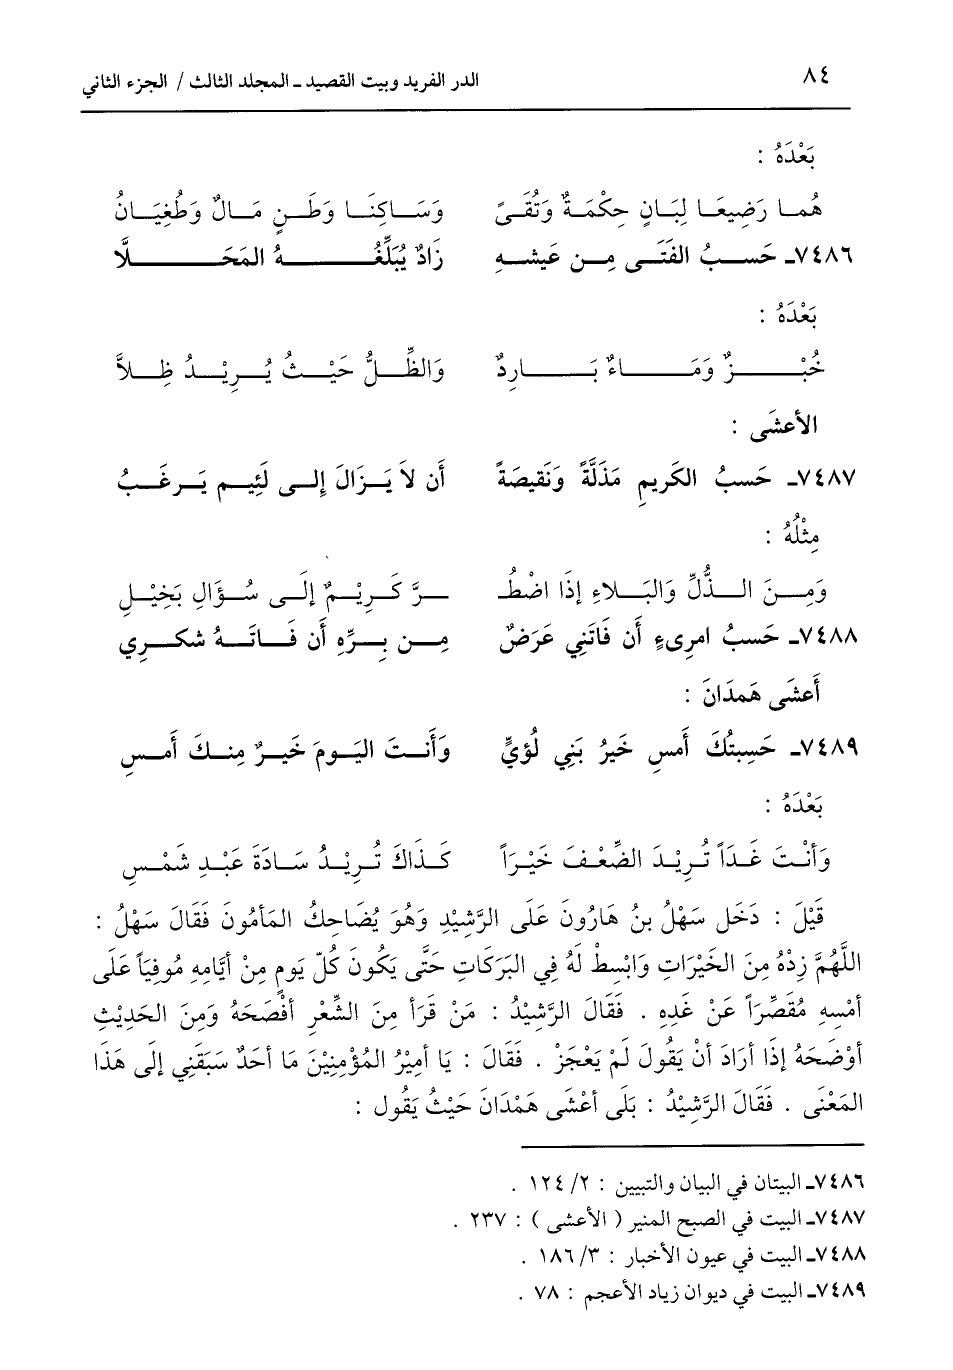 ٨٤ الدر الفريد وبيت القصيد ـ المجلد الثالث / الجزء الثاني
بَعْدَهُ :
هُما رَضِيعَا لِبَانٍ حِكْمَةٌ وَتُقَىً وَسَاكِنَا وَطَنٍ مَالٌ وَطُغيَانُ
٧٤٨٦ـ حَسبُ الفَتَى مِن عَيشهِ زَادٌ يُبَلِّغُهُ المَحَلَّا
بَعْدَهُ :
خُبْزٌ وَمَاءٌ بَارِدٌ وَالظِّلُّ حَيْثُ يُرِيْدُ ظِلاَّ
الأعشَى :
٧٤٨٧ـ حَسبُ الكَريمِ مَذَلَّةً وَنَقيصَةً أَن لاَ يَزَالَ إِلى لَئِيم يَرغَبُ
مِثْلُهُ :
وَمِنَ الذُّلِّ وَالبَلاءِ إِذَا اضْطُ رَّ كَرِيْمٌ إِلَى سُؤَالِ بَخِيْلِ
٧٤٨٨ـ حَسبُ امرِىءٍ أَن فَاتَنِي عَرَضٌ مِن بِرِّهِ أَن فَاتَهُ شكرِي
أَعشَى هَمدَانَ :
٧٤٨٩ـ حَسِبتُكَ أَمسِ خَيرُ بَنِي لُؤَيٍّ وَأَنتَ اليَومَ خَيرٌ مِنكَ أَمسِ
بَعْدَهُ :
وَأَنْتَ غَدَاً تُرِيْدَ الضِّعْفَ خَيْرَاً كَذَاكَ تُرِيْدُ سَادَةَ عَبْدِ شَمْسِ
قَيْلَ : دَخَل سَهْلُ بنُ هَارُونَ عَلَى الرَّشِيْدِ وَهُوَ يُضَاحِكُ المَأمُونَ فَقَالَ سَهْلُ :
اللَّهُمَّ زِدْهُ مِنَ الخَيْرَاتِ وَابْسِط لَهُ فِي البَرَكَاتِ حَتَّى يَكُونَ كُلّ يَومٍ مِنْ أيَّامِهِ مُوفِيَاً عَلَى
أمْسِهِ مُقَصِّرَاً عَنْ غَدِهِ . فَقَالَ الرَّشِيْدُ : مَنْ قَرَأ مِنَ الشِّعْرِ أفْصَحَهُ وَمِنَ الحَدِيْثِ
أوْضَحَهُ إذَا أرَادَ أنْ يَقُولَ لَمْ يَعْجَزْ . فَقَالَ : يَا أمِيْرُ المُؤْمِنِيْنَ مَا أحَدٌ سَبَقَنِي إلَى هَذَا
المَعْنَى . فَقَالَ الرَّشِيْدُ : بَلَى أعْشَى هَمْدَانَ حَيْثُ يَقُول :
٧٤٨٦ـ البيتان في البيان والتبيين : ٢/ ١٢٤ .
٧٤٨٧ـ البيت في الصبح المنير ( الأعشى ) : ٢٣٧ .
٧٤٨٨ـ البيت في عيون الأخبار : ٣/ ١٨٦ .
٧٤٨٩ـ البيت في ديوان زياد الأعجم : ٧٨ .